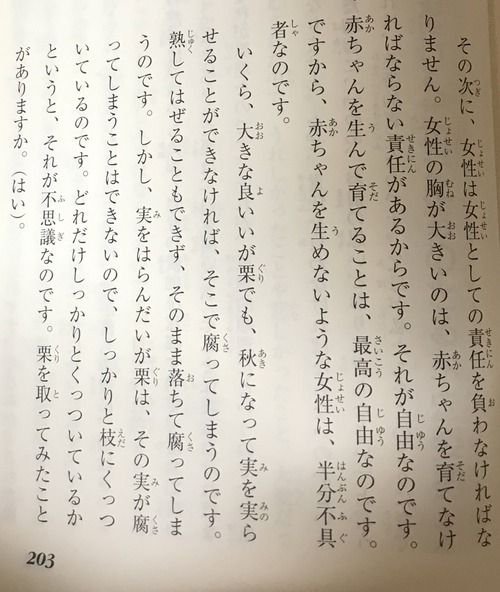 その次に、女性は女性としての責任を負わなければな
りません。女性の胸が大きいのは、赤ちゃんを育てなけ
ればならない責任があるからです。それが自由なのです。
赤ちゃんを生んで育てることは、最高の自由なのです。
ですから、赤ちゃんを生めないような女性は、半分不具
者なのです。
いくら、大きな良いいが栗でも、秋になって実を実ら
せることができなければ、そこで腐ってしまうのです。
熟してはぜることもできず、そのまま落ちて腐ってしま
うのです。しかし、実をはらんだいが栗は、その実が腐
ってしまうことはできないので、しっかりと枝にくっつ
いているのです。どれだけしっかりとくっついているか
というと、それが不思議なのです。栗を取ってみたこと
がありますか。(はい)。
203